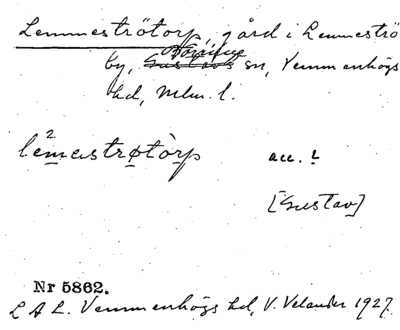 Lemmeströtorp, gård i Lemmeströ
by, Börringe sn, Vemmenhögs
hd, Mlm. l.
lèmastrøtòrp acc. 2
[Gustav]
Nr 5862.
L A L. Vemmenhögs hd, V. Velander 1927.